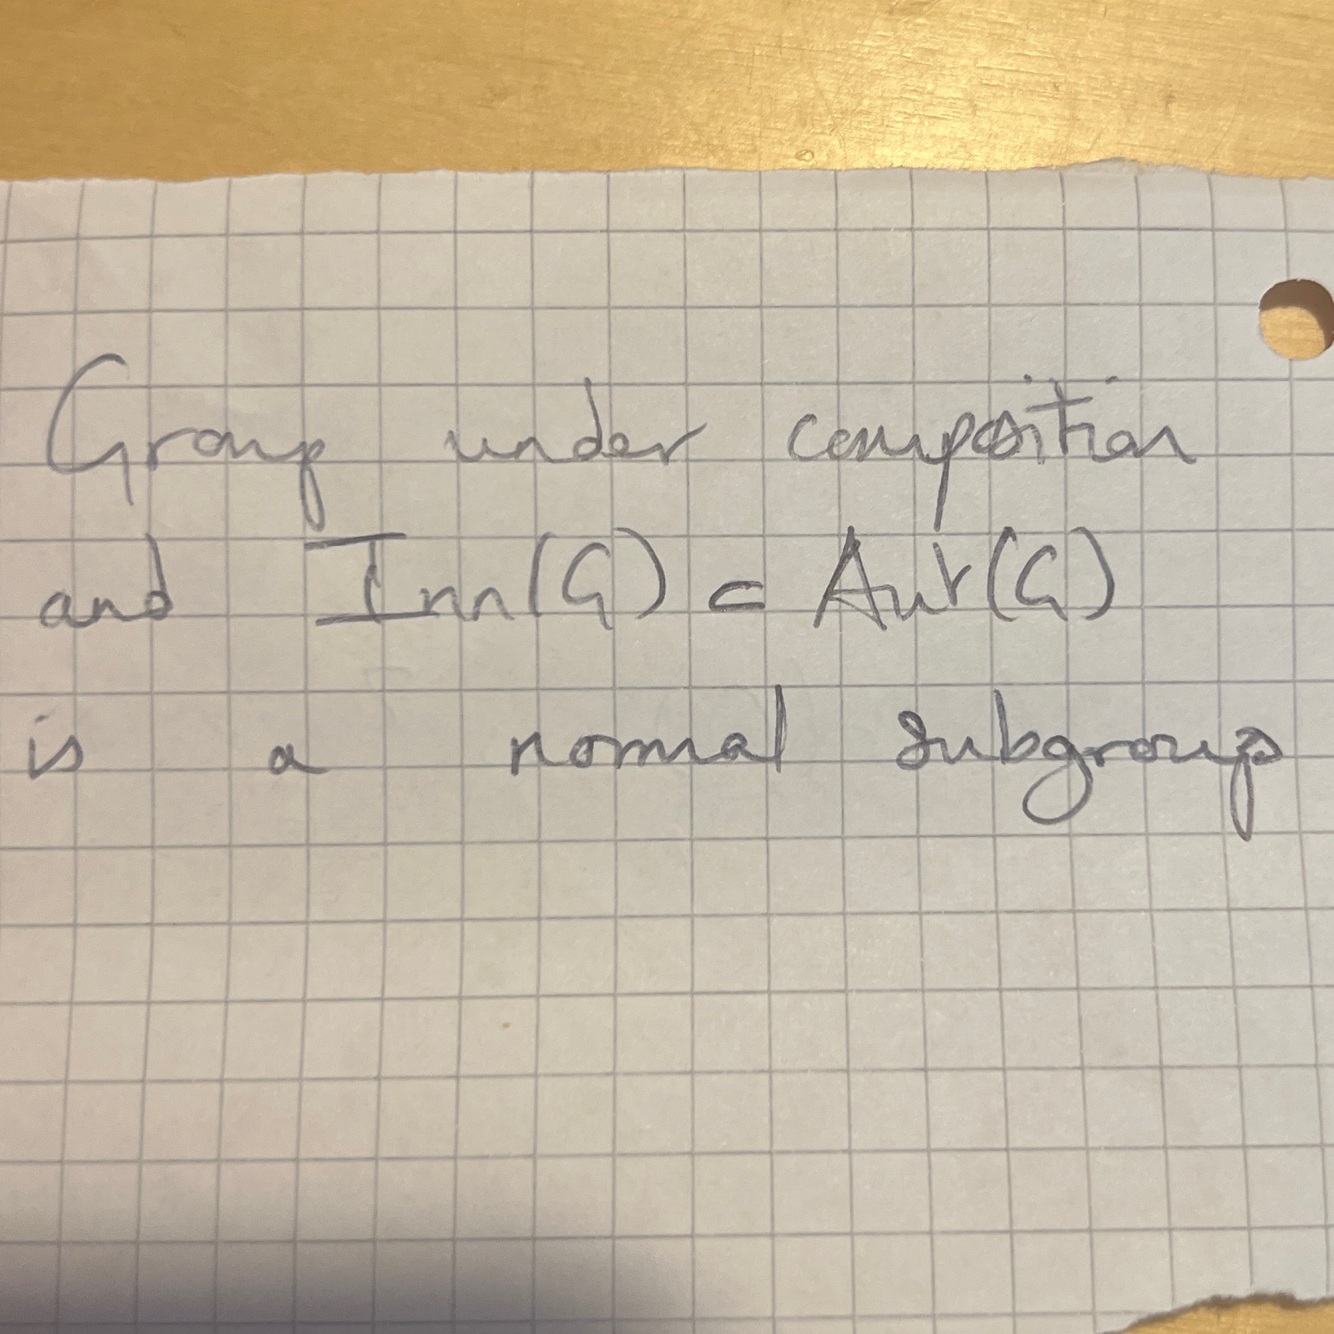 Group under composition
and Inn(G) ⊂ Aut(G)
is a normal subgroup